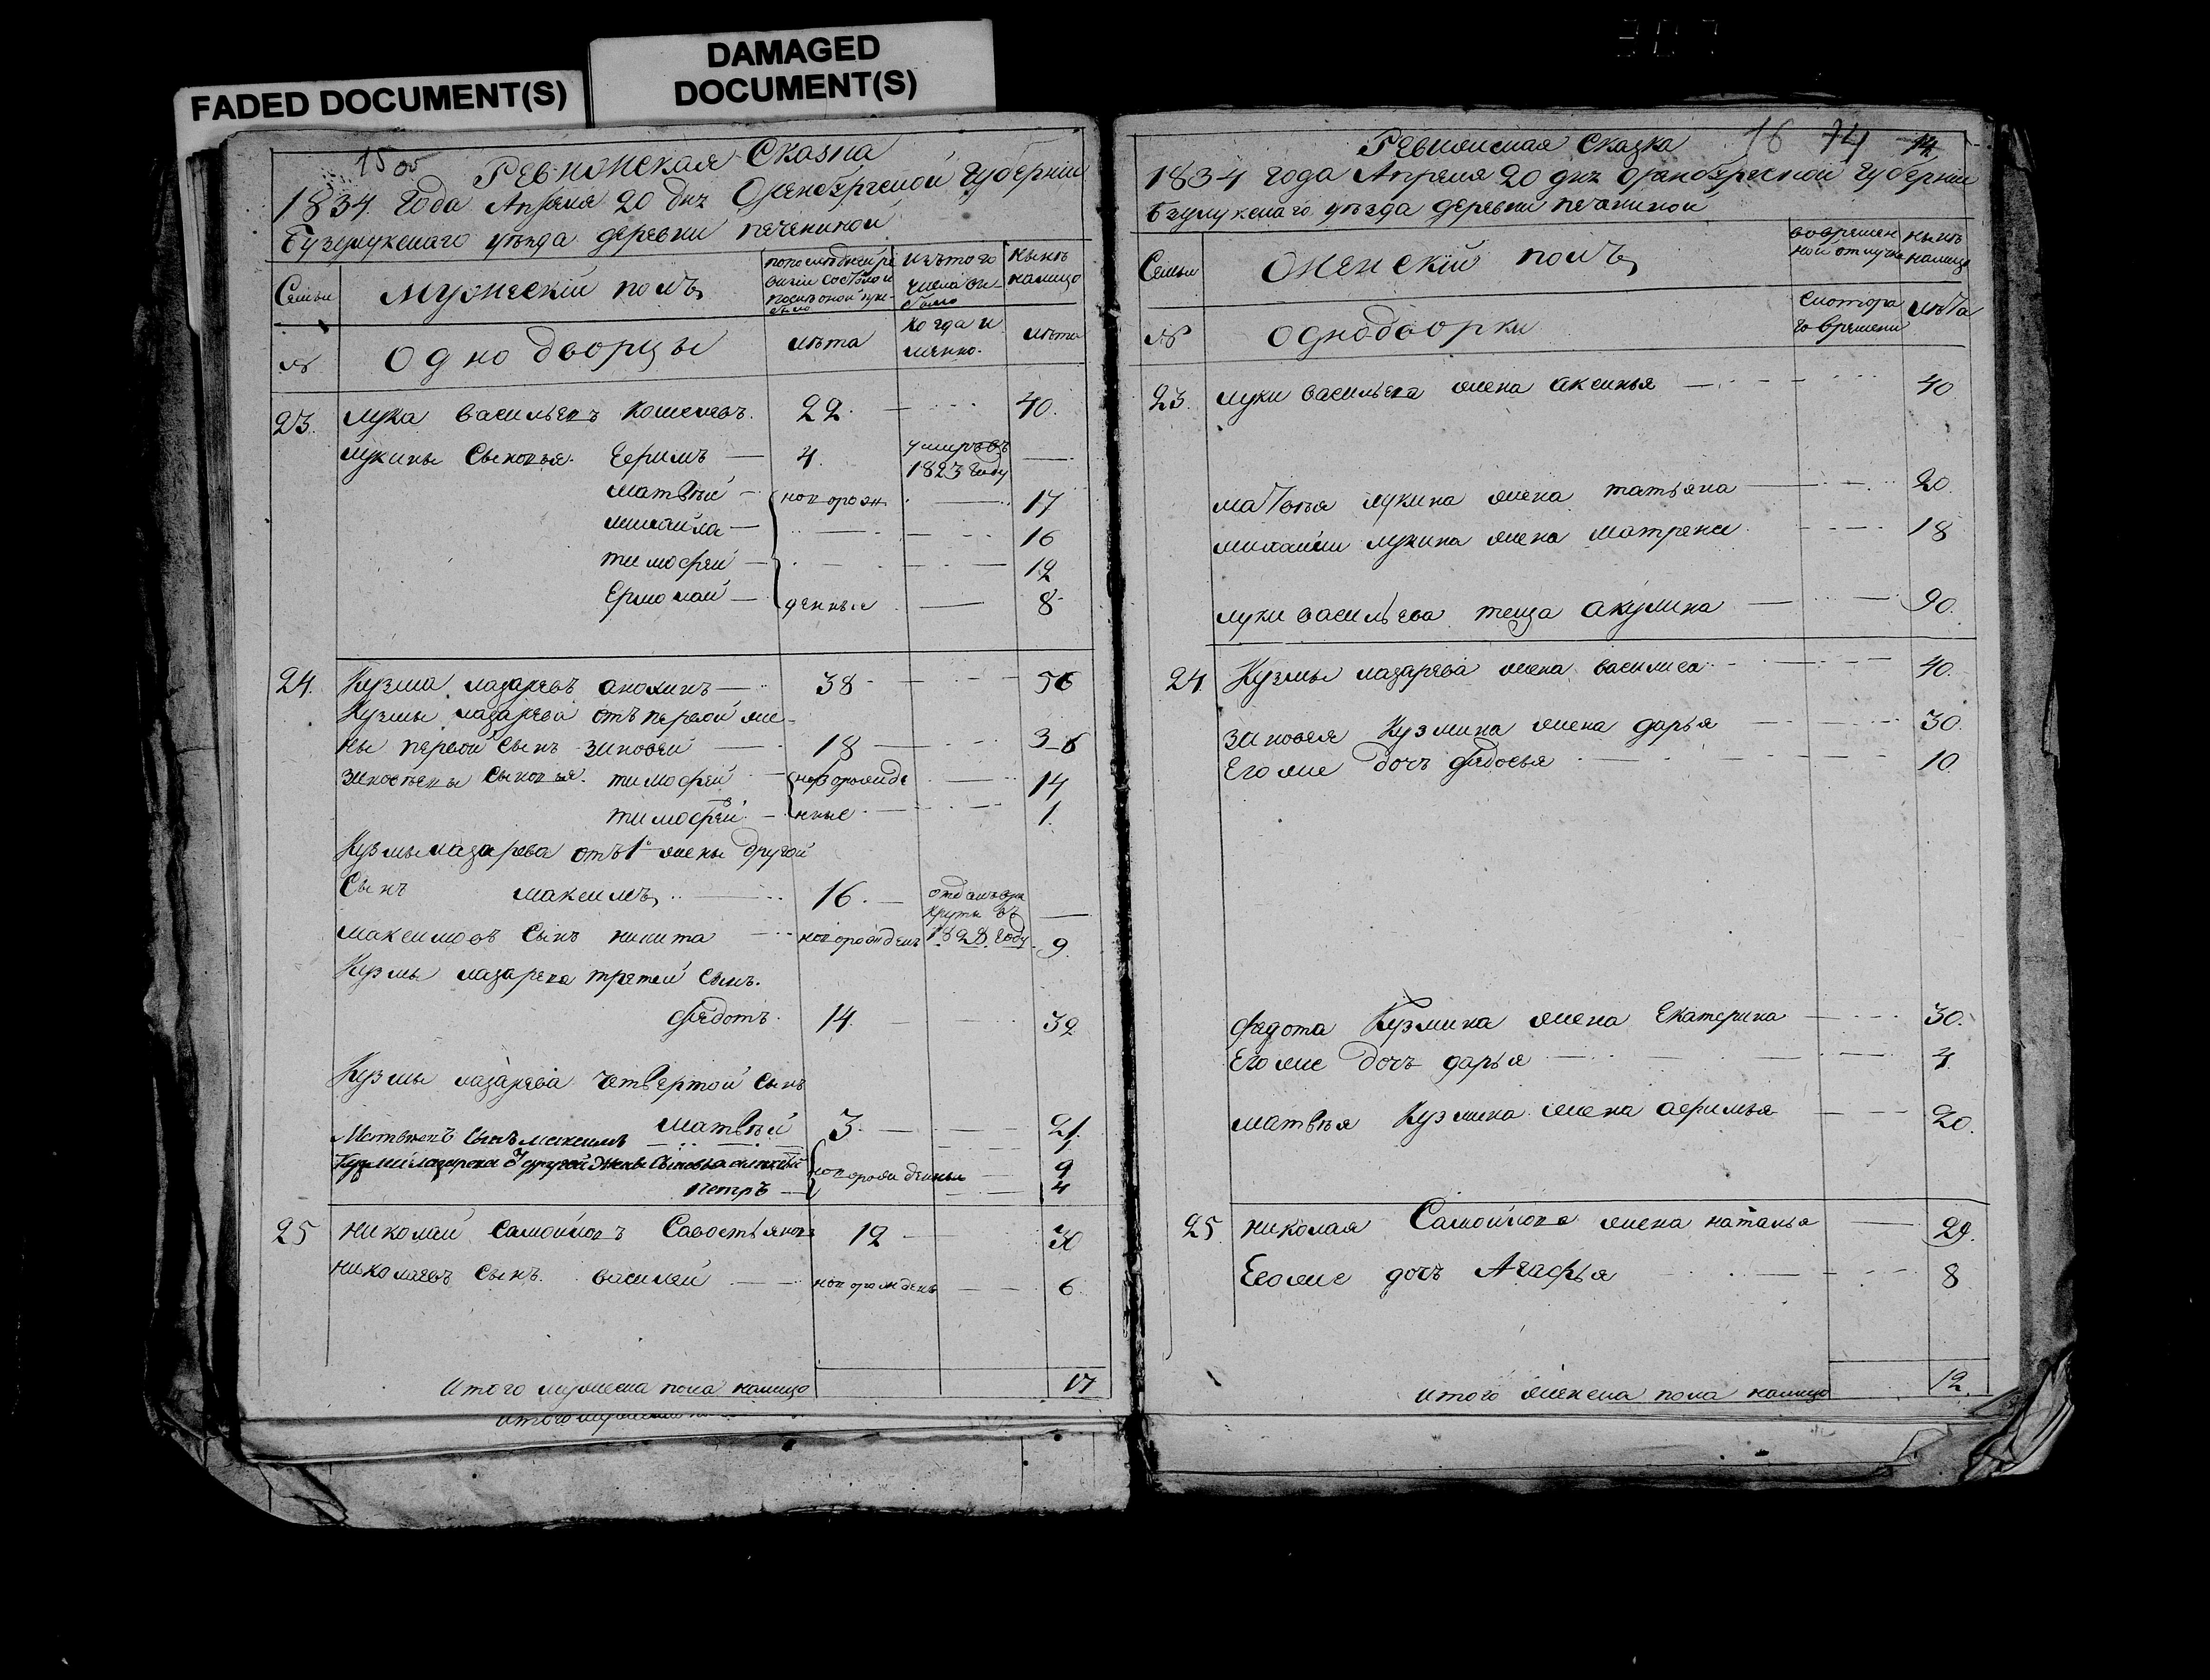 FADED DOCUMENT(S)
DAMAGED
DOCUMENT(S)
15
Ревижская Сказка
1834 года Апреля 20 днъ Оренбургской Губернии
Бузулукскаго уезда деревни печениной
Семьи
Мужескiй полъ
ныне
налицо
№
Однодворцы
лета
когда и
лета
23. лука васильевъ кошелевъ. 22. 40.
лукины Сыновья. Ефримъ 4. умиръ въ
1823 году
матвей новорож 17
михайла 16
тимофеи 12
Ермолаи денные 8
24. Кузма лазаревъ анохинъ 38 56
Кузмы лазарева отъ первой же-
ны первой сынъ зиновеи 18 36
зиновьевы сыновья. тимофеи новорожде 14
тимофеи нные 1.
Кузмы лазарева отъ 1й жены другой
Сынъ максимъ 16. отданъ въ ре
круты въ
максимовъ Сынъ никита новорожденъ 1828 году 9.
Кузмы лазарева третей сынъ.
федотъ. 14. 32
Кузмы лазарева четвертой сынъ
матвеи 3. 21.
Матвеевъ сынъ максимъ 1
Кузмы лазарева от другой жены Сыновья 9
петръ новорожденные 4
25 николаи Самойловъ Савостьянов 12 30
николаевъ Сынъ. василеи новорожденъ 6.
Итого мужеска пола налицо 17
итого
16 74 14
Ревижская Сказка
1834 года Апреля 20 днъ оренбургской Губернии
Бзулукскаго уезда деревни печениной
Семьи
Женскiй полъ
вовремен
ной отлучке
ныне
налицо
№
однодворки
Скотора
го времени
лета
23. луки васильева жена аксинья 40
матвея лукина жена татьяна 20.
михайлы лукина жена матрена 18
луки васильева теща акулина 90.
24 Кузмы лазарева жена василиса 40.
зиновея Кузмина жена дарья 30.
Его же дочь федосья 10.
федота Кузмина жена Екатерина 30.
Его же дочь дарья 4.
матвея Кузмина жена афимья 20.
25. николая Самойлова жена наталья 29.
Его же дочь Агафья 8
итого женска пола налицо 12.